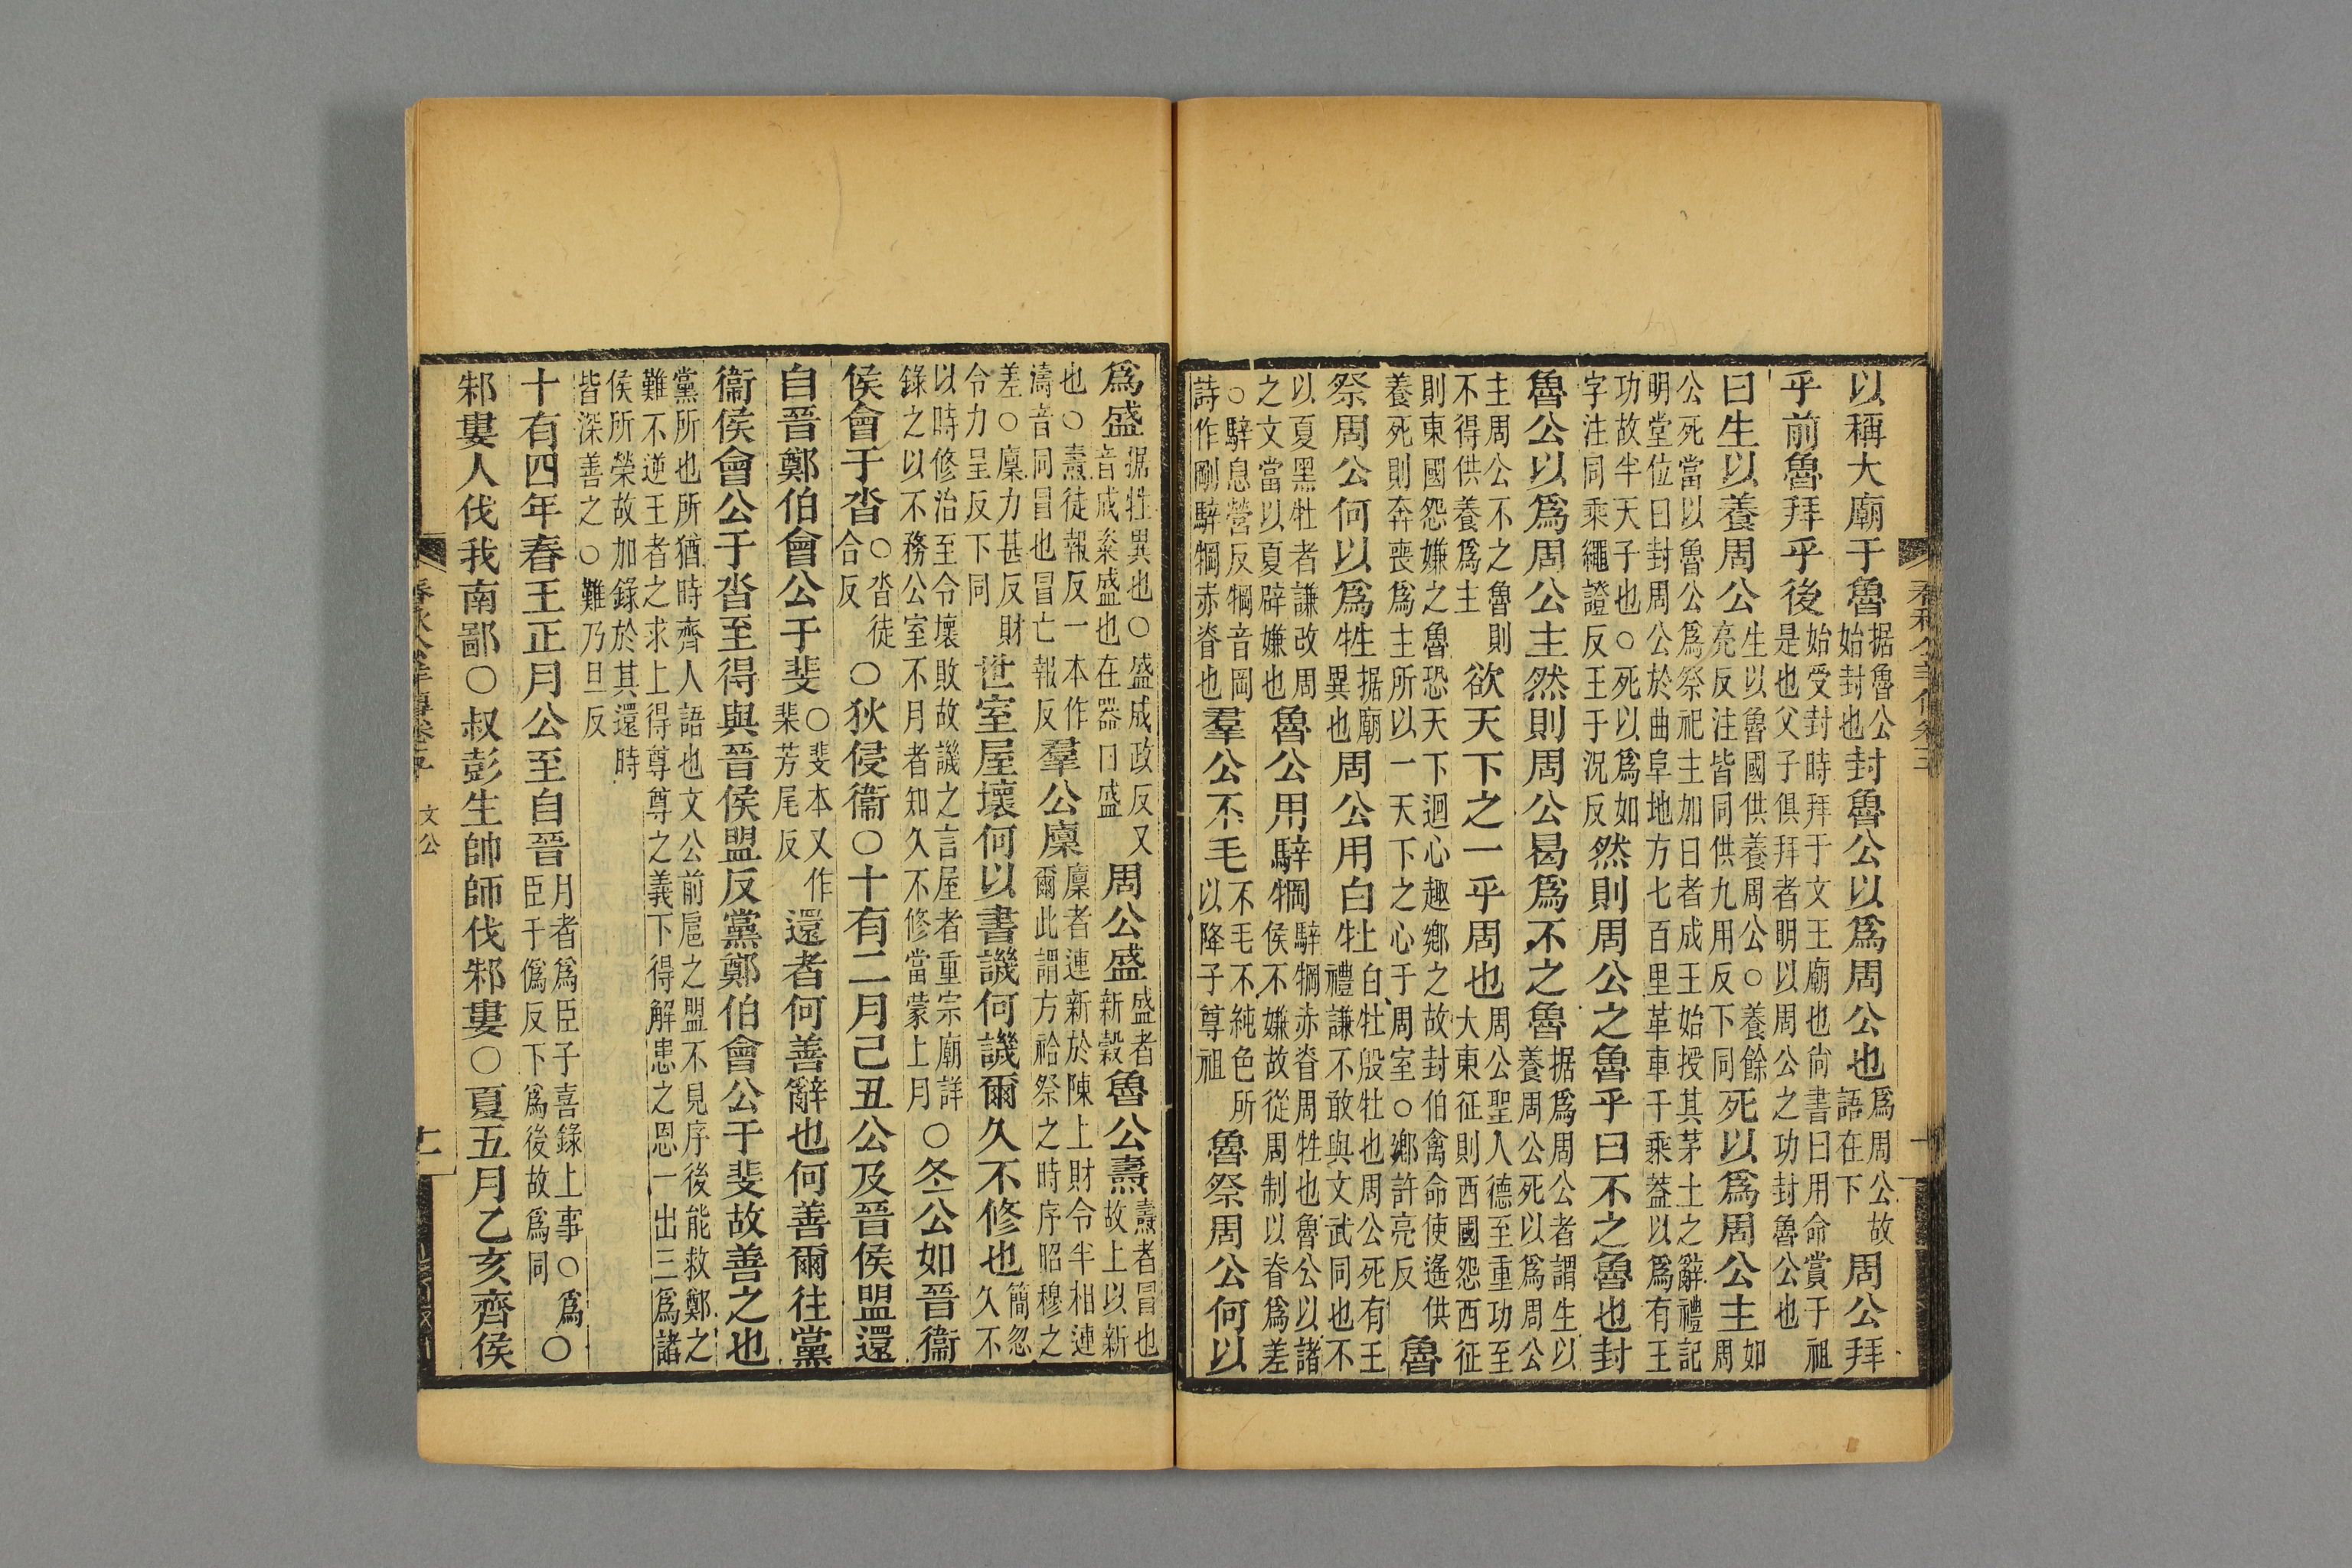 以稱大廟于魯据魯公始封也封魯公以爲周公也爲周公故語在下周公拜
乎前魯拜乎後始受封時拜于文王廟也尚書曰用命賞于祖是也父子俱拜者明以周公之功封魯公也
曰生以養周公生以魯國供養周公○養餘亮反注皆同供九用反下同死以爲周公主如周
公死當以魯公爲祭祀主加曰者成王始授其茅土之辭禮記明堂位曰封周公於曲阜地方七百里革車千乘蓋以爲有王
功故半天子也○死以爲如字注同乘繩證反王于況反然則周公之魯乎曰不之魯也封
魯公以爲周公主然則周公曷爲不之魯据爲周公者謂生以養周公死以爲周公
主周公不之魯則不得供養爲主欲天下之一乎周也周公聖人德至重功至大東征則西國怨西征
則東國怨嫌之魯恐天下迴心趣鄉之故封伯禽命使遙供養死則奔喪爲主所以一天下之心于周室○鄉許亮反魯
祭周公何以爲牲据廟異也周公用白牡白牡殷牡也周公死有王禮謙不敢與文武同也不
以夏黑牡者謙改周之文當以夏辟嫌也魯公用騂犅騂犅赤脊周牲也魯公以諸侯不嫌故從周制以脊爲差
○騂息營反犅音岡詩作剛騂犅赤脊也羣公不毛不毛不純色所以降子尊祖魯祭周公何以
爲盛据牲異也○盛成政反又音成粢盛也在器曰盛周公盛盛者新穀魯公燾燾者冒也故上以新
也○燾徒報反一本作濤音同冒也冒亡報反羣公廩廩者連新於陳上財令半相連爾此謂方祫祭之時序昭穆之
差○廩力甚反財令力呈反下同世室屋壞何以書譏何譏爾久不修也簡忽久不
以時修治至令壞敗故譏之言屋者重宗廟詳錄之以不務公室不月者知久不修當蒙上月○冬公如晉衞
侯會于沓○沓徒合反○狄侵衞○十有二月己丑公及晉侯盟還
自晉鄭伯會公于斐○斐本又作棐芳尾反還者何善辭也何善爾往黨
衞侯會公于沓至得與晉侯盟反黨鄭伯會公于斐故善之也
黨所也所猶時齊人語也文公前扈之盟不見序後能救鄭之難不逆王者之求上得尊尊之義下得解患之恩一出三爲諸
侯所榮故加錄於其還時皆深善之○難乃旦反
十有四年春王正月公至自晉月者爲臣子喜錄上事○爲臣于僞反下爲後故爲同○
邾婁人伐我南鄙○叔彭生帥師伐邾婁○夏五月乙亥齊侯
文公